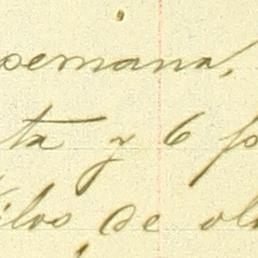 semana,
ta y 6 p
ilos de ol